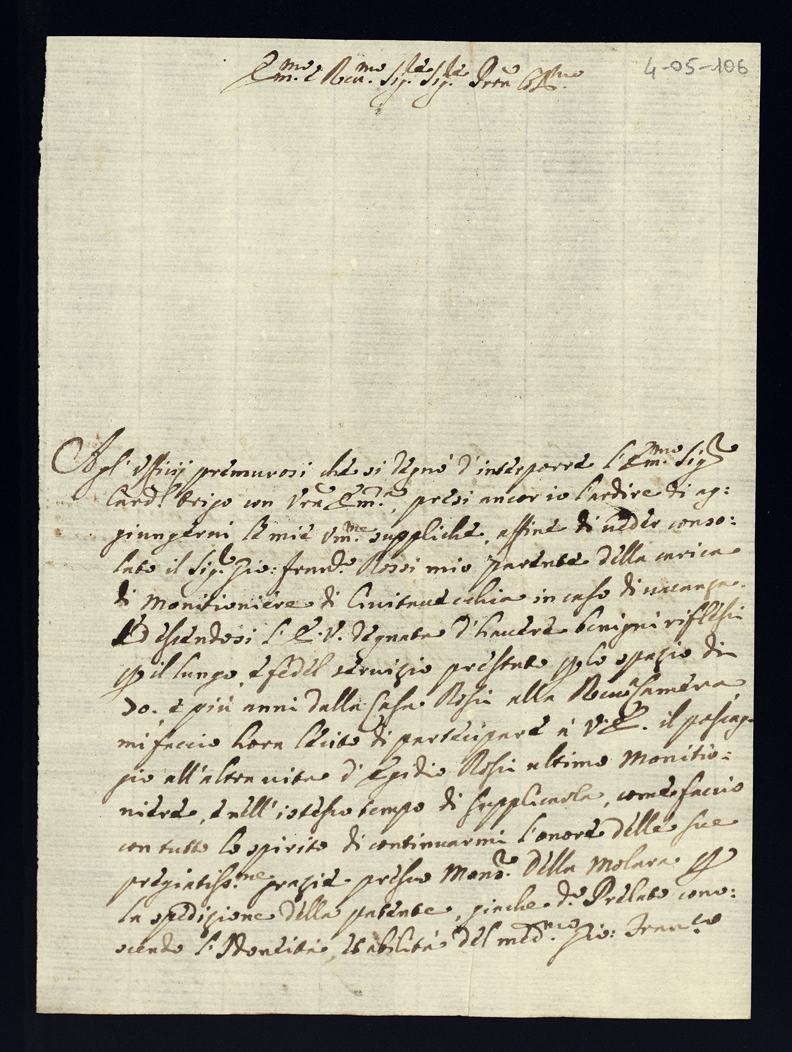 4-05-106
Em.mo e Rev.mo Sig.re Sig.re Pron Col.mo
Agl' uffizij premurosi che si degnò d'interporre l'Em.mo Sig.r
Card.l Origo con Vra Em.a, presi ancor io l'ardire di ag:
giungerni le mie um.me suppliche, affine di veder conso:
lato il Sig.r Gio: Fran.co Rossi mio parente della carica
di Monitioniere di Civitavecchia in caso di vacanza.
Ed essendosi l'E.V. degnata d'havere benigni riflessi
p il lungo, e fedel servizio prestato p lo spazio di
70. e più anni dalla Casa Rossi alla Rev.a Camera,
mi faccio hora lecito di partecipare à V.E. il passag-
gio all'altra vita d'Egidio Rossi ultimo Monitio:
niere, e nell'istesso tempo di supplicarla, come faccio
con tutto lo spirito di continuarmi l'onore delle sue
pregiatiss.me grazie presso Mons.r Della Molara p
la spedizione della patente, giache d.o Prelato cono:
scendo l'Idoneità, et abilità del med.mo Gio: Fran.co